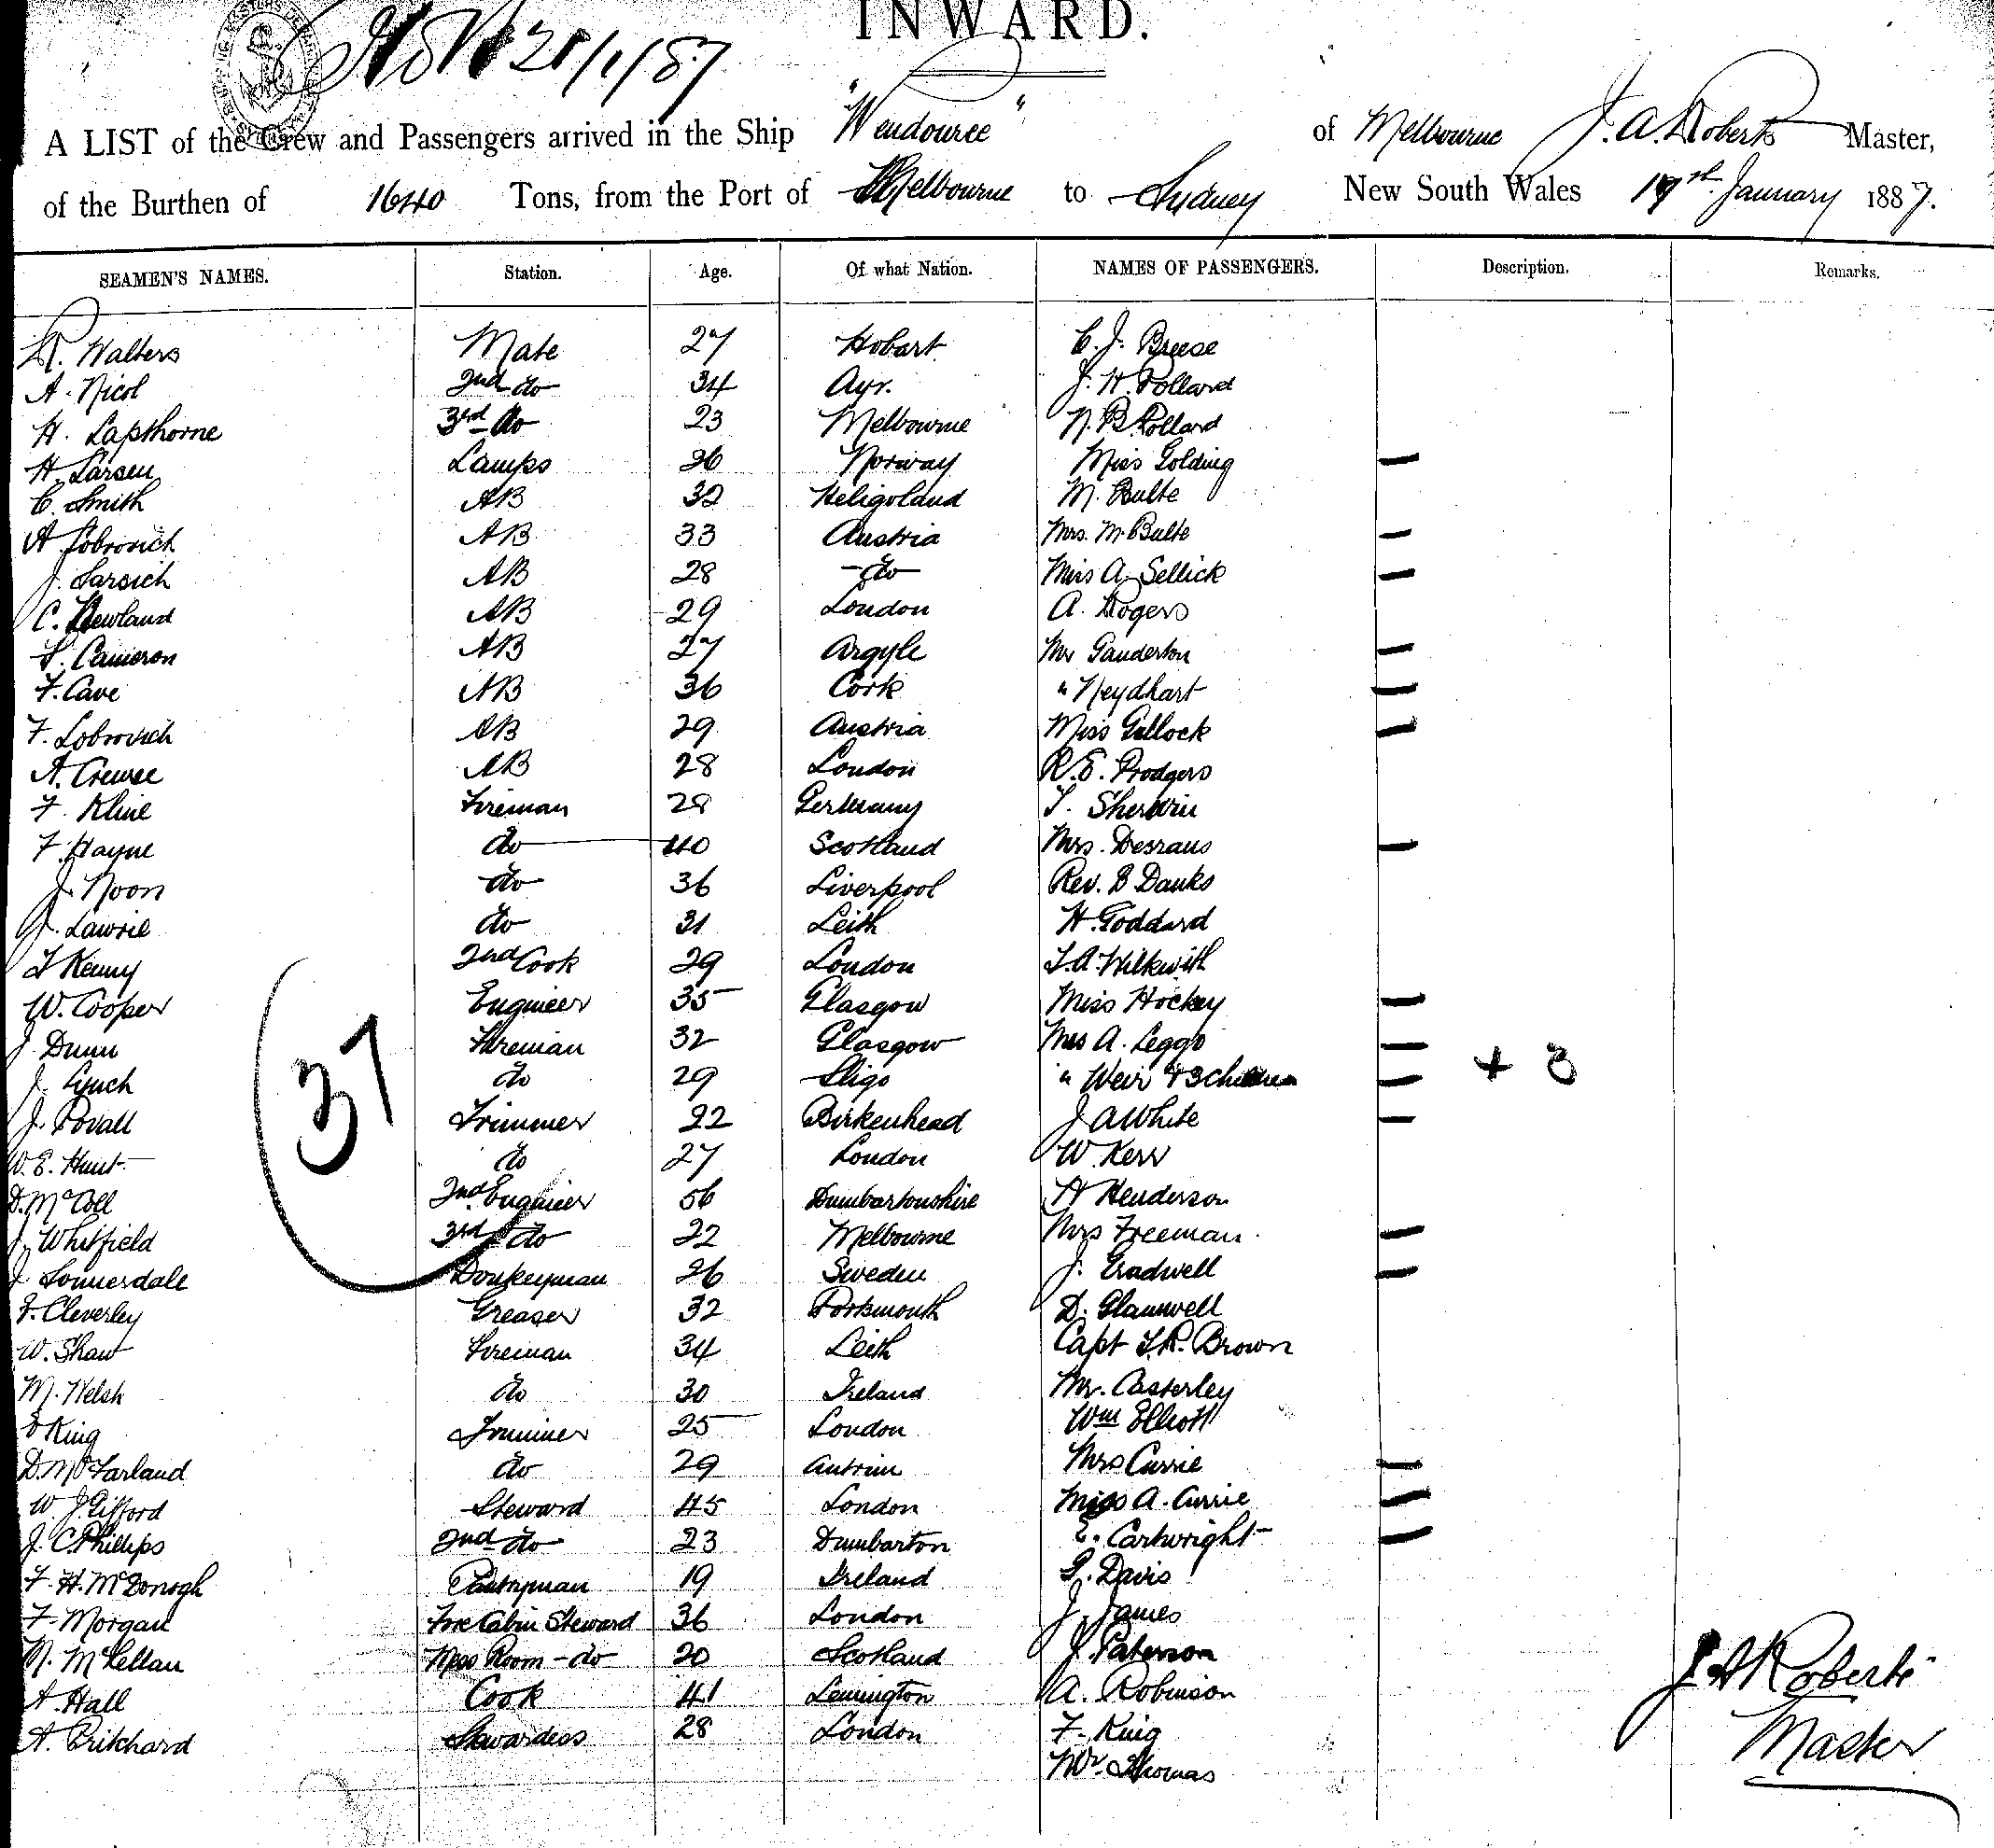 INWARD.
21/1/87
A LIST of the Crew and Passengers arrived in the Ship "Wendouree" of Melbourne J. A. Roberts Master,
of the Burthen of 1640 Tons, from the Port of Melbourne to Sydney New South Wales January 1887.
SEAMEN'S NAMES. Station. Age. Of what Nation. NAMES OF PASSENGERS. Description. Remarks.
R. Walters Mate 27 Hobart C. J. Breese
A. Nicol 2nd do 34 Ayr. J. H. Pollard
H. Lapthorne 3rd do 23 Melbourne N. B. Pollard
H. Larsen Lamps 26 Norway Miss Golding —
C. Smith AB 32 Heligoland M. Bulte
A. Lobrovich AB 33 Austria Mrs. M. Bulte —
J. Sarsich AB 28 do Miss A. Sellick —
C. Newland AB 29 London A. Rogers
Cameron AB 27 Argyle Mr Ganderton —
F. Cave AB 36 Cork " Neydhart —
F. Lobrovich AB 29 Austria Miss Gillock —
A. Crewse AB 28 London R. E. Prodgers
F. Kline Fireman 28 Germany T. Sherwin
F. Hayne do 40 Scotland Mrs. Desraus —
J. Noon do 36 Liverpool Rev. B Danks
J. Lawrie do 31 Leith H. Goddard
T Kenny 2nd Cook 29 London T. A. Wilkwith
W. Cooper Engineer 35 Glasgow Miss Hockey —
J. Dunn Fireman 32 Glasgow Mrs A. Leggo —
J. Lynch do 29 Sligo " Weir & 3 Children — + 3
J. Povall Trimmer 22 Birkenhead J A White —
W. E. Hunt do 27 London W. Kerr
D. McColl 2nd Engineer 56 Dumbartonshire H Henderson
J. Whitfield 3rd do 22 Melbourne Mrs Freeman —
J Sonnersdale Donkeyman 26 Sweden J. Gradwell —
F. Cleverley Greaser 32 Portsmouth D. Glanwell
W. Shaw Fireman 34 Leith Capt T. R. Brown
M. Welsh do 30 Ireland Mr. Casterley
King Trimmer 25 London Wm Elliott
D. McFarland do 29 Antrim Mrs Currie —
W. J. Gifford Steward 45 London Miss A. Currie —
J. C. Phillips 2nd do 23 Dumbarton E. Cartwright —
F. H. McDonogh Pantryman 19 Ireland G. Davis
F. Morgan Fore Cabin Steward 36 London J. James
N. McLellan Mess Room - do 20 Scotland J. Paterson
A. Hall Cook 41 Lemington A. Robinson
A. Pritchard Stewardess 28 London F. King
Mr. Thomas
37
J. A Roberts
Master